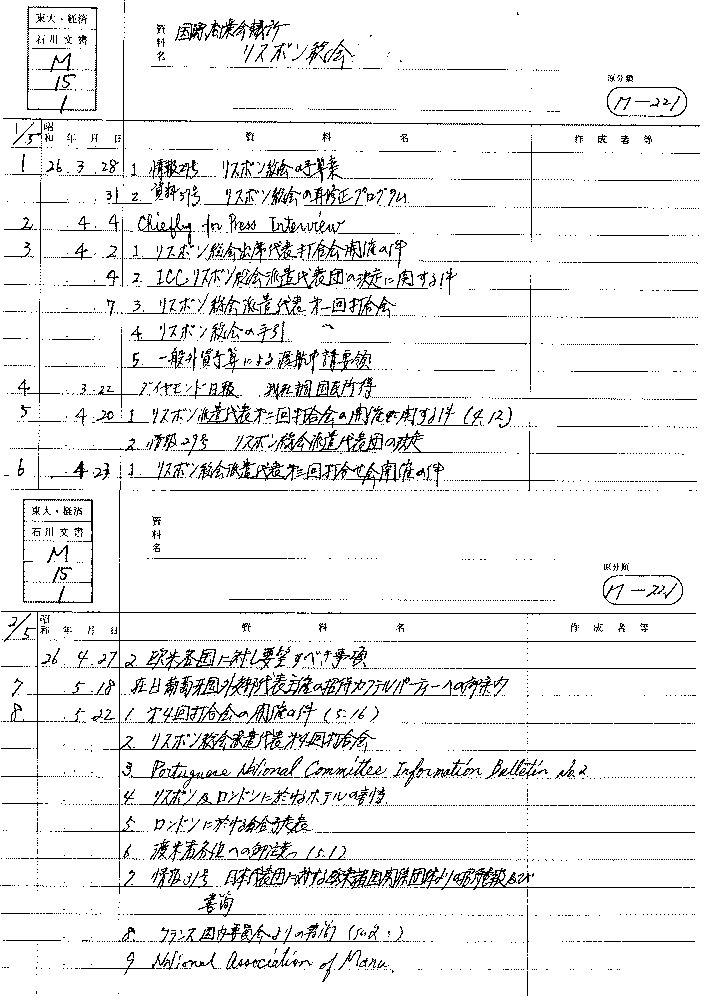 東大・経済
石川文書
M
15
1
資料名 国際商業会議所
リスボン総会
原分類
M-221
1/5 昭和 年 月 日 資料名 作成者等
1 26 3 28 1 情報27号 リスボン総会の予算案
31 2 資料31号 リスボン総会の再修正プログラム
2 4 4 Chiefly for Press Interview
3 4 2 1 リスボン総会出席代表打合会開催の件
4 2 ICCリスボン総会派遣代表団の決定に関する件
7 3. リスボン総会派遣代表才一回打合会
4. リスボン総会の手引 〃
5. 一般外貨予算による渡航申請要領
4 3.22 ダイヤモンド日報 国民所得
5 4 20 1 リスボン派遣代表才二回打合会の開催に関する件 (4.12)
2 情報29号 リスボン総会派遣代表団の決定
6 4 23 1 リスボン総会派遣代表才三回打合せ会開催の件
東大・経済
石川文書
M
15
1
資料名
原分類
M-221
2/5 昭和 年 月 日 資料名 作成者等
26 4 27 2 欧米各国に対し要望すべき事項
7 5 18 在日葡萄牙国外交部代表主催の招待カクテルパーティーへの御案内
8 5 22 1 才4回打合会の開催の件 (5.16)
2 リスボン総会派遣代表才4回打合会
3 Portuguese National Committee Information Bulletin No.2
4 リスボン及ロンドンに於けるホテルの事情
5 ロンドンに於ける会合予定表
6 渡米者各位への御注意 (5.1)
7 情報31号 日本代表団に対する欧米諸国関係団体よりの招待及び
書簡
8. フランス国内委員会よりの書簡
9 National Association of Manu.